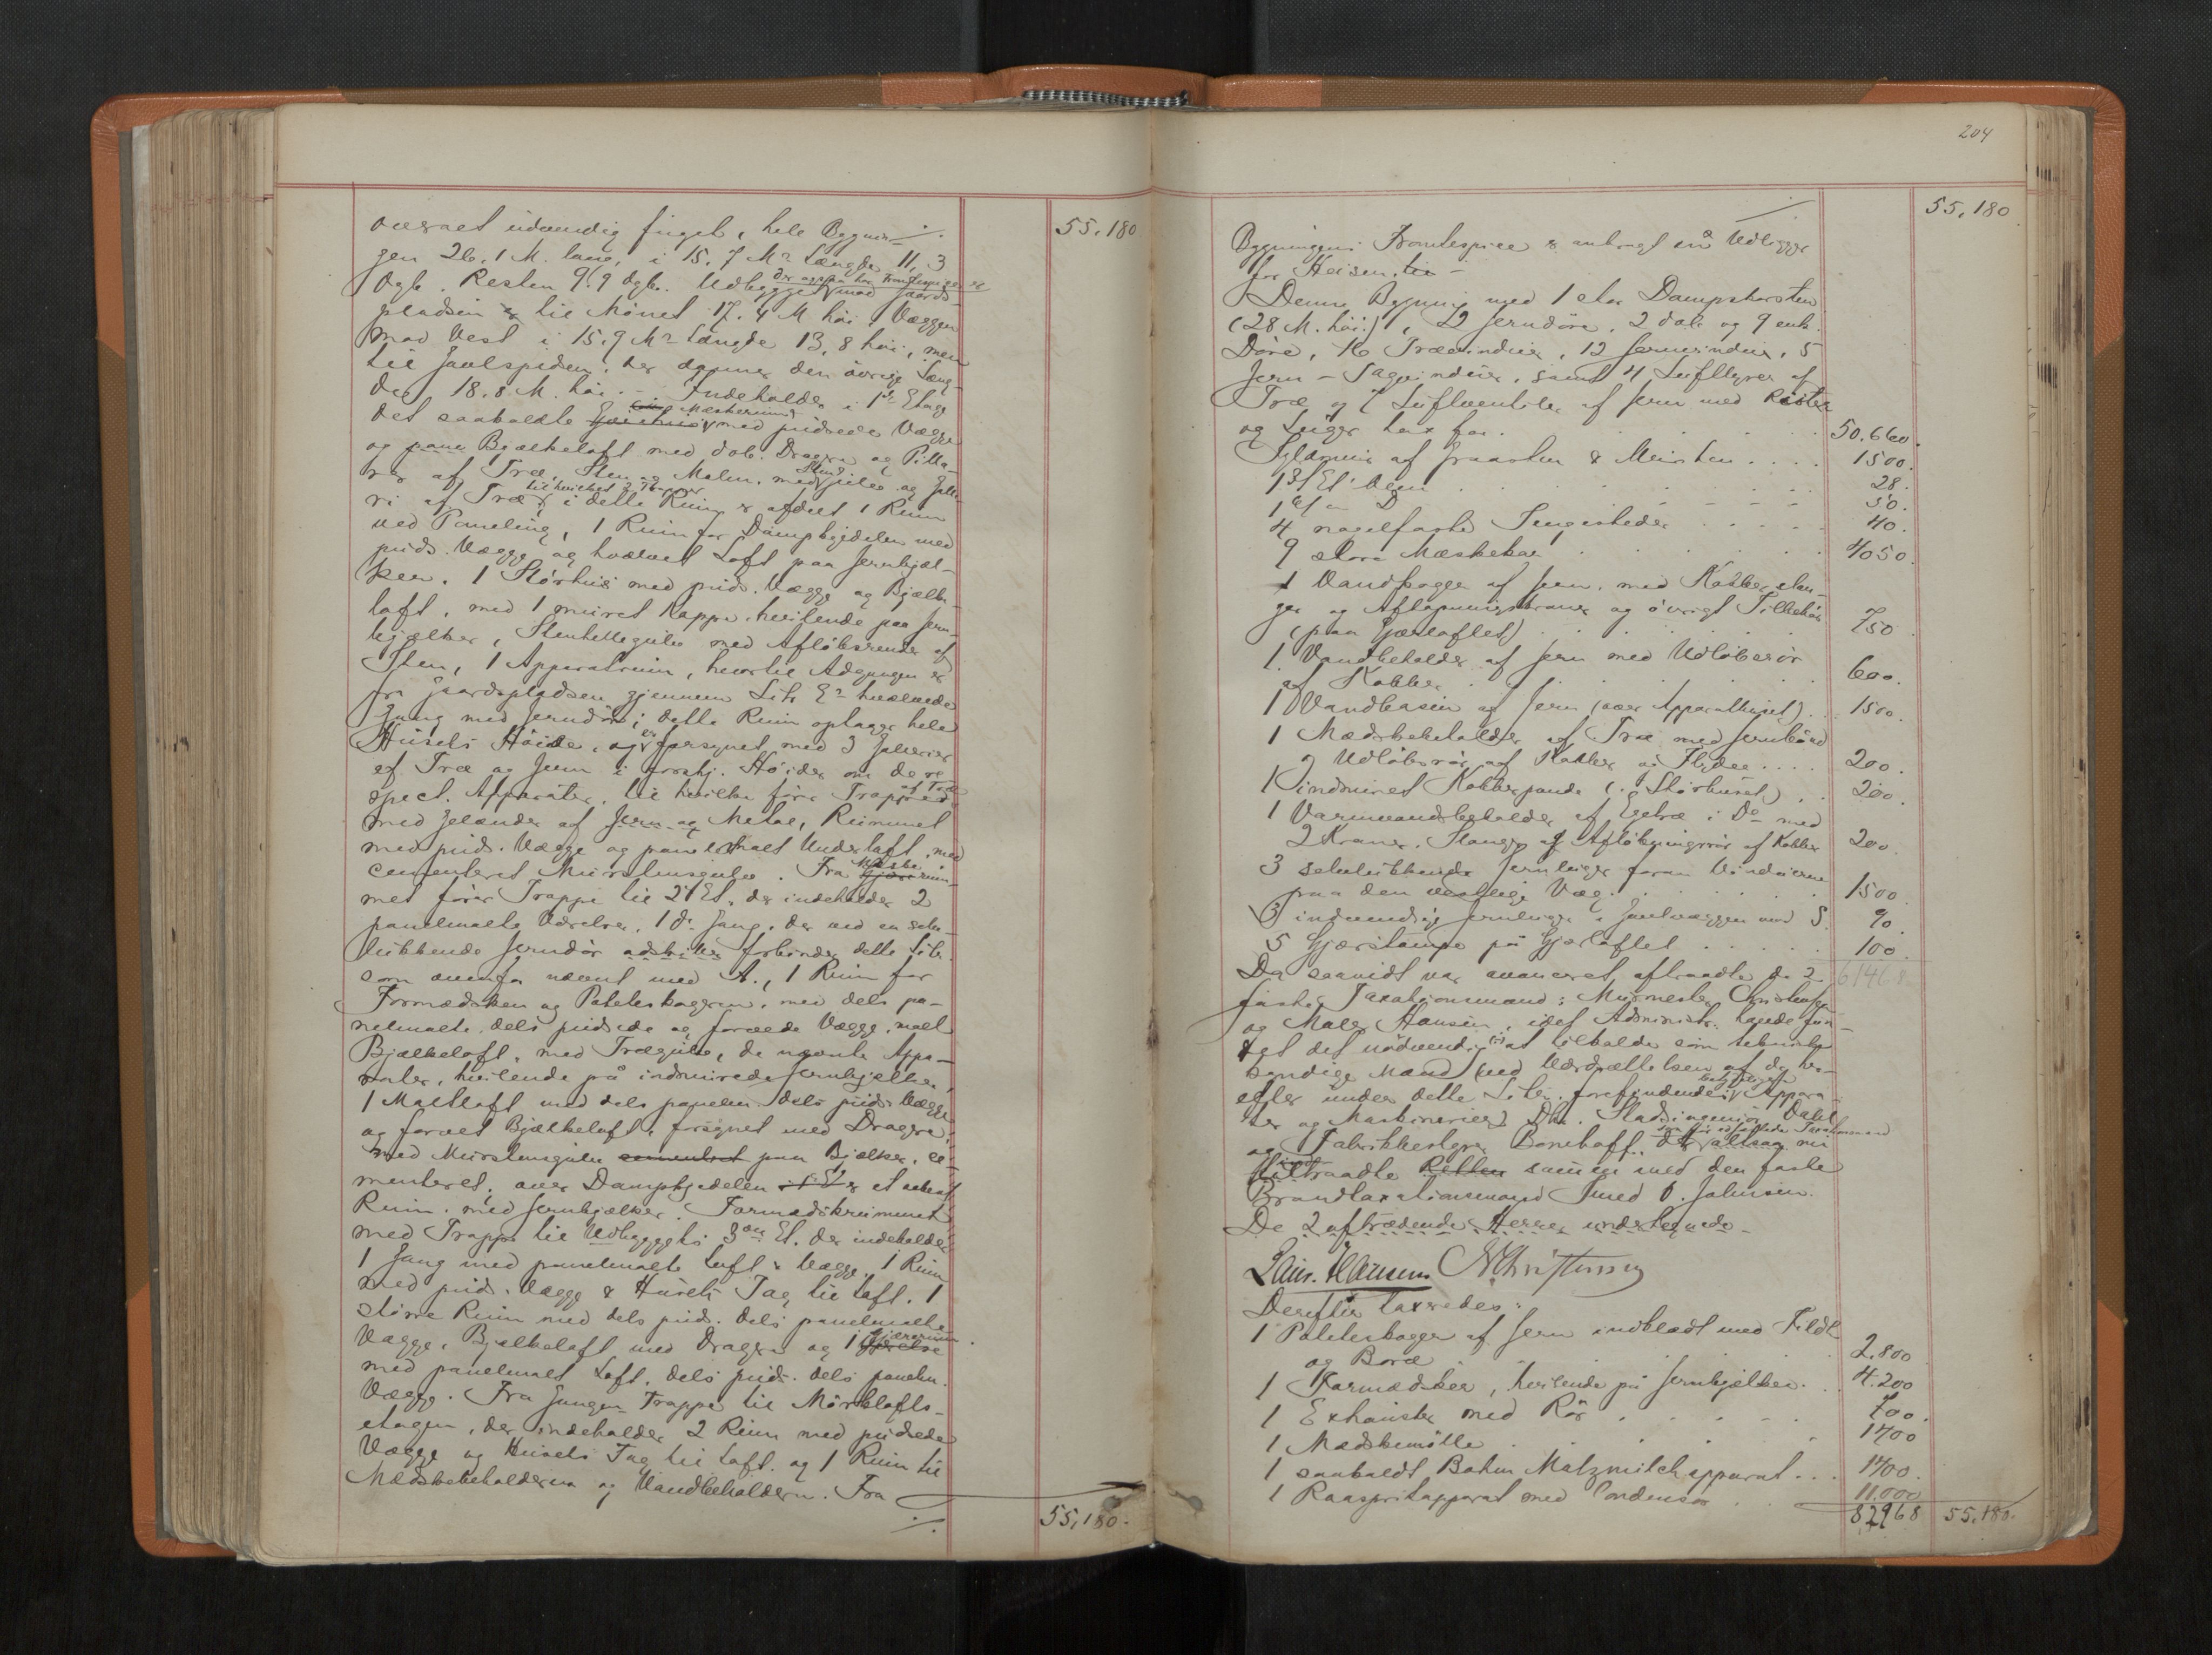 overnet udvendig fuget, hele Bygnin- ./.
55,180
gen 26.1 M. lang, i 15.7 Mr Længde 11,3
der ogsaa har Frontespice er
Dyb. Resten 9.9 Dyb. Udbygget mod Gaards-
pladsen er til Mønet 17.4 M høi, Væggen
mod Vest i 15.9 Mr Længde 13,8 høi, men
til Gavlspidsen, der danner den øvrige Læng-
de, 18.8 M. høi. – Indeholder i 1ste Etage
Mæskerum
det saakaldte med pudsede Vægge
og pane Bjælkeloft med dob. Dragere og Pilla-
rer af Træ, Sten og Malm, med Stengulv og Galle-
til hvilket 2 Trapper
ri af Træ, i dette Rum er afdelt 1 Rum
ved Paneling, 1 Rum for Dampkjedelen med
puds. Vægge og hvælvet Loft paa Jernbjæl-
ker, 1 Størhus med puds. Vægge og Bjælke-
loft, med 1 muret Kappe, hvilende paa Jern-
bjælker, Stenhellegulv med Afløbsrender af
Sten, 1 Apparatrum, hvortil Adgangen er
fra Gaardspladsen gjennem Litr. E's hvælvede
Gang med Jerndør; dette Rum optager hele
Husets Høide, og er forsynet med 3 Gallerier
af Træ og Jern i forskj. Høider om de re-
af Træ
spect. Apparater, til hvilke fører Trapper
med Gelænder af Jern og Metal, Rummet
med puds. Vægge og panelmalt Underloft, med
Mæske
cementeret Murstensgulv. Fra rum-
met fører Trappe til 2den Et., der indeholder 2
panelmalte Værelser, 1 do Gang, der ved en selv-
lukkende Jerndør adskiller forbinder dette Litr.
som ovenfor nævnt med A., 1 Rum for
Formæsken og Potetkoggeren, med dels pa-
nelmalte, dels pudsede og farvede Vægge, malt
Bjælkeloft, med Trægulv, de nævnte Appa-
rater, hvilende på indmurede Jernbjælker,
1 Maltloft med dels panelm. dels puds. Vægge
og farvet Bjælkeloft, forsynet med Dragere,
med Murstensgulv cementeret paa Bjælker, ce-
menteret; over Dampkjedelen er et
Rum, med Jernbjælker. Formæskrummet
med Trappe til Udbyggets 3die Et. der indeholder
1 Gang med panelmalte Loft & Vægge, 1 Rum
med puds. Vægge & Husets Tag til Loft, 1
større Rum med dels puds. dels panelmalte
Gjærerum
Vægge, Bjælkeloft med Dragere og 1
med panelmalt Loft, dels puds. dels panelm.
Vægge. Fra Gangen Trappe til Mørklofts-
etagen, der indeholder 2 Rum med pudsede
Vægge og Husets Tag til Loft, og 1 Rum til
Mæskebeholderen og Vandbeholderen. Fra
./. 55,180.
204
./. 55,180
Bygningens Frontespice er anbragt en Udligger
for Heisen. –
Denne Bygning med 1 stor Dampskorsten
(28 M. høi), 12 Jerndøre, 2 dob. og 9 enk.
Døre, 16 Trævinduer, 12 Jernvinduer, 5
Jern-Tagvinduer, samt 4 Luftlyrer af
Træ og 7 Luftventiler af Jern med Rister
og Luger tax. for . . 50.660.
af Graasten & Mursten . . . . 1500.
1 3/Et. Ovn . . . . 28.
1 D . . . . 50.
4 nagelfaste Sengesteder . . . . 40.
9 store Mæskekar . . . . 4050.
1 Vandkogger af Jern, med Kobberslan-
ger og Aftapningskraner og øvrigt Tilbehør
(paa Gjærloftet) . . . . 750.
1 Vandbeholder af Jern med Udløbsrør
af Kobber . . . . 600.
1 Vandbasin af Jern (over Apparathuset) . . 1500.
1 Mæskebeholder af Træ med Jernbånd
2 Udløbsrør af Kobber og . . . . 200.
1 indmuret Kobberpande (i Størhuset) . . 200.
1 Varmvandsbeholder af Egetræ i Do med
2 Kraner, Slange og Afløbningsrør af Kobber 200.
3 selvlukkende Jernluger foran Vinduerne
paa den vestlige Væg . . . . 1500.
3 indvendige Jernluger i Gavlvæggen mod S. 90.
5 Gjærstamper på Gjærloftet . . . . 100.
Da saavidt var avanceret, aftraadte de 2 61468
faste Taxationsmænd: Murmester Christensen
og Maler Hansen, idet Administr. havde fun-
det det nødvendigt at tilkalde som teknisk
kyndige Mænd ved Værdsættelsen af de her-
efter under dette Litr. forefindende Appara-
ter og Maskinerier Dhr. Stadsingeniør Dahl
og Fabrikbestyrer Bonehoff, der altsaa nu
tiltraadte Retten sammen med den faste
Brandtaxationsmand Smed O. Johnsen.
De 2 aftrædende Herrer undertegnede.
Laur. Hansen N Christensen
Derefter taxeredes:
1 Potetkogger af Jern indklædt med Fildt
og Bord . . . . 2.800
1 Formæsker, hvilende på Jernbjælker . . 4.200
1 Exhauster med Rør . . . . 700.
1 Mæskemølle . . . . 1700
1 saakaldt Bohm Malzmilchapparat . . . 1400.
1 Raaspritapparat med Condensor . . 11.000
82968 55,180.